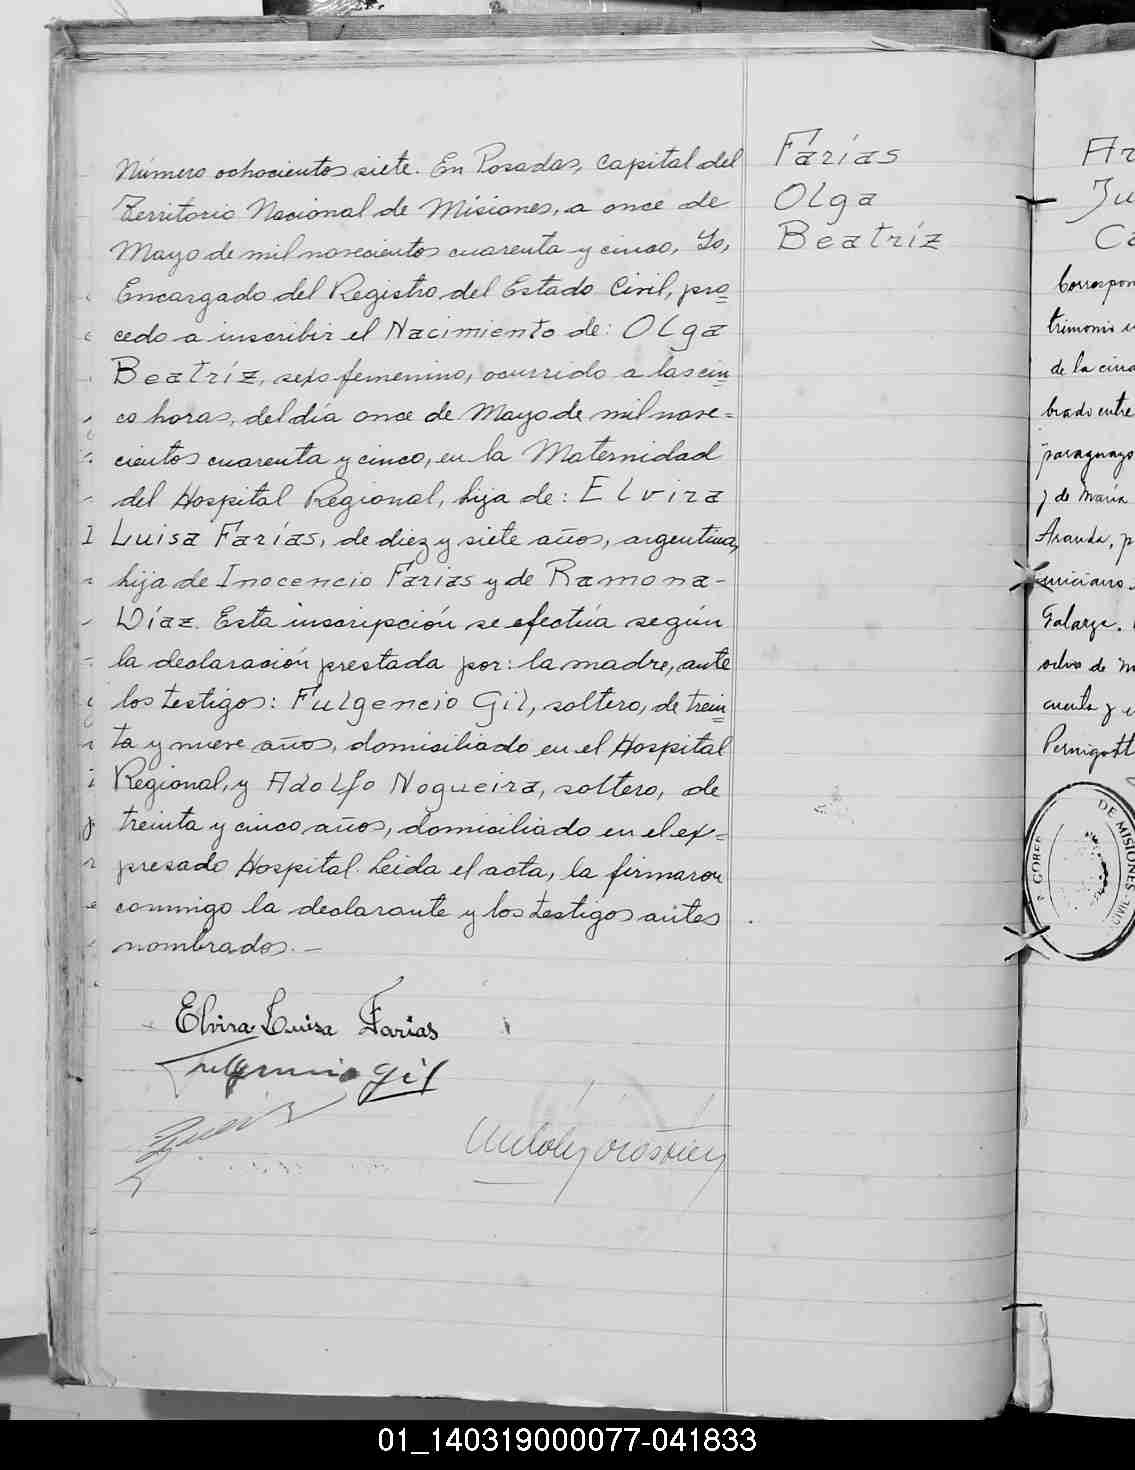 Número ochocientos siete. En Posadas, Capital del
Territorio Nacional de Misiones, a once de
Mayo de mil novecientos cuarenta y cinco, Yo,
Encargado del Registro del Estado Civil, pro=
cedo a inscribir el Nacimiento de: Olga
Beatríz, sexo femenino, ocurrido a las cin=
co horas, del día once de Mayo de mil nove=
cientos cuarenta y cinco, en la Maternidad
del Hospital Regional, hija de: Elvira
Luisa Farías, de diez y siete años, argentina,
hija de Inocencio Farias y de Ramona-
Díaz. Esta inscripción se efectúa según
la declaración prestada por: la madre, ante
los testigos: Fulgencio Gil, soltero, de trein=
ta y nueve años, domiciliado en el Hospital
Regional, y Adolfo Nogueira, soltero, de
treinta y cinco años, domiciliado en el ex=
presado Hospital. Leida el acta, la firmaron
conmigo la declarante y los testigos antes
nombrados.-
Elvira Luisa Farias
Fulgencio Gil
Farías
Olga
Beatríz
Ar
Ju
Ca
Correspon
trimonio
de la
brado entre
paraguayo
y de María
Aranda, p
Galarza.
ocho de M
Pernigott
DE MISIONES
CIVIL
GOBER
01_140319000077-041833